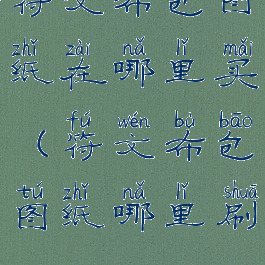 符文布包图
zhǐ zài nǎ lǐ mǎi
纸在哪里买
fú wén bù bāo
（符文布包
tú zhǐ nǎ lǐ shuā
图纸哪里刷